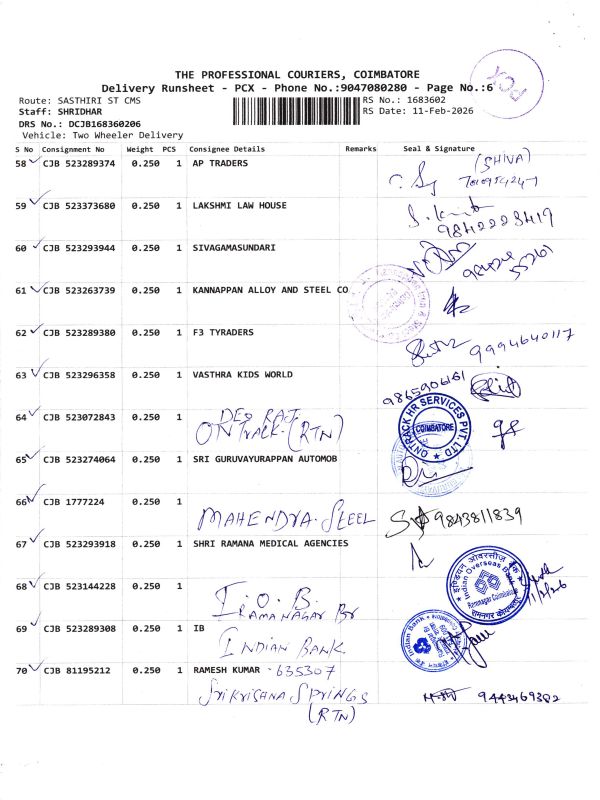 THE PROFESSIONAL COURIERS, COIMBATORE
Delivery Runsheet - PCX - Phone No.:9047080280 - Page No.:6
PCX
Route: SASTHIRI ST CMS
RS No.: 1683602
Staff: SHRIDHAR
RS Date: 11-Feb-2026
DRS No.: DCJB168360206
Vehicle: Two Wheeler Delivery
S No Consignment No Weight PCS Consignee Details Remarks Seal & Signature
58 CJB 523289374 0.250 1 AP TRADERS
(SHIVA)
59 CJB 523373680 0.250 1 LAKSHMI LAW HOUSE
9842223419
60 CJB 523293944 0.250 1 SIVAGAMASUNDARI
61 CJB 523263739 0.250 1 KANNAPPAN ALLOY AND STEEL CO
62 CJB 523289380 0.250 1 F3 TYRADERS
9994640117
63 CJB 523296358 0.250 1 VASTHRA KIDS WORLD
9865906161
64 CJB 523072843 0.250 1
DEO RAJ.
ONTRACK. (RTN)
ONTRACK HR SERVICES PVT. LTD
COIMBATORE
65 CJB 523274064 0.250 1 SRI GURUVAYURAPPAN AUTOMOB
66 CJB 1777224 0.250 1
MAHENDRA. STEEL
9843811839
67 CJB 523293918 0.250 1 SHRI RAMANA MEDICAL AGENCIES
68 CJB 523144228 0.250 1
I. O. B.
RAMANAGAR Br
इण्डियन ओवरसीज़ बैंक
Indian Overseas Bank
Ramnagar Coimbatore
रामनगर कोयम्बतूर
11/2/26
69 CJB 523289308 0.250 1 IB
INDIAN BANK.
Indian Bank
70 CJB 81195212 0.250 1 RAMESH KUMAR - 635307
SriKrisana Springs
(RTN)
9443469382